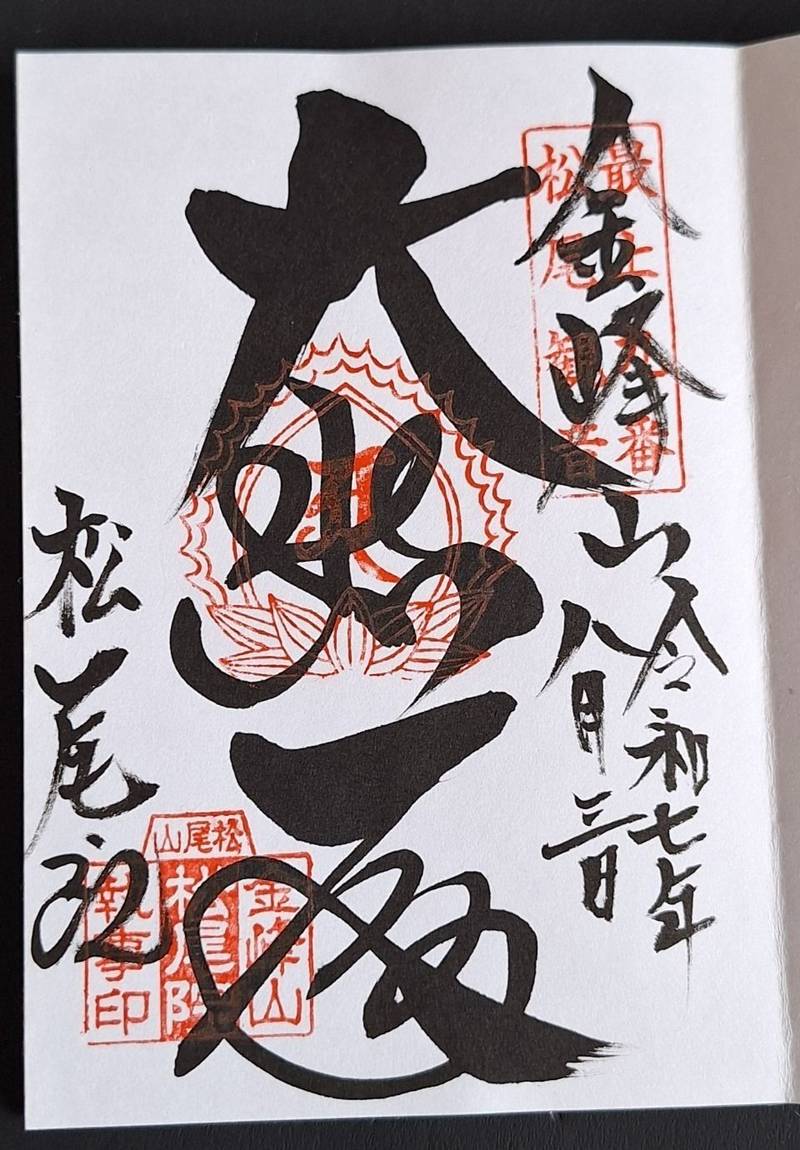 金峰山
令和七年
八月三日
大悲閣
松尾院
最上
番
松尾観音
松尾山
金峰山
松尾院
執事印